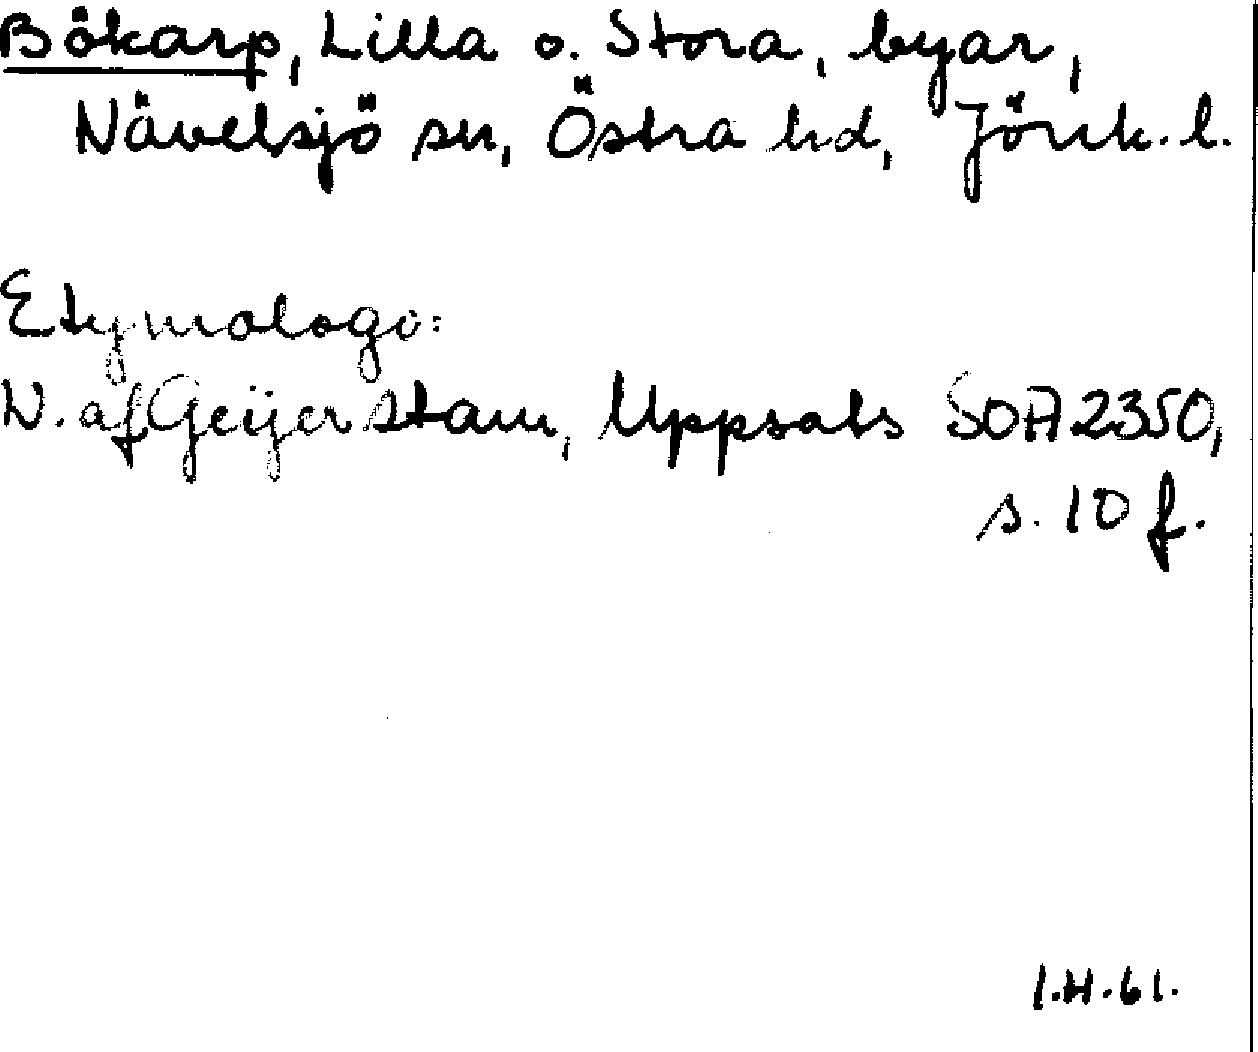 Bökarp, Lilla o. Stora, byar,
Nävelsjö sn, Östra hd, Jönk. l.
Etymologi:
W. af Geijerstam, Uppsats SOA 2350,
s. 10 f.
I.H. 61.